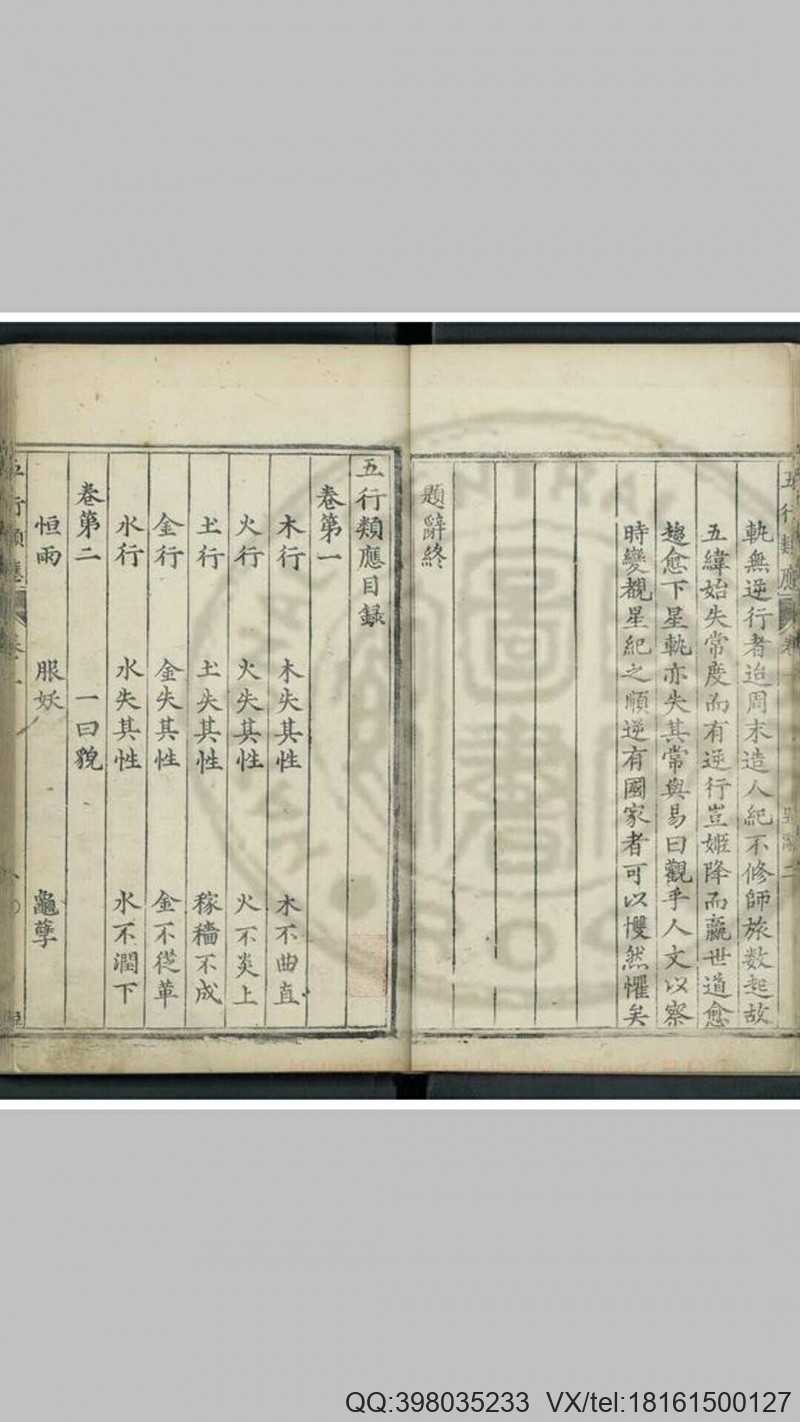 軌無逆行者迨周末造人紀不修師旅数起故
五緯始失常度而有逆行豈姬降而嬴世道愈
趨愈下星軌亦失其常與易曰觀乎人文以察
時變觀星紀之順逆有國家者可以戄然懼矣
題辭終
五行類應目録
卷第一
木行 木失其性 木不曲直
火行 火失其性 火不炎上
土行 土失其性 稼穡不成
金行 金失其性 金不從革
水行 水失其性 水不潤下
卷第二 一曰貌
恒雨 服妖 龜孽
五行類應
QQ:398035233 VX/tel:18161500127